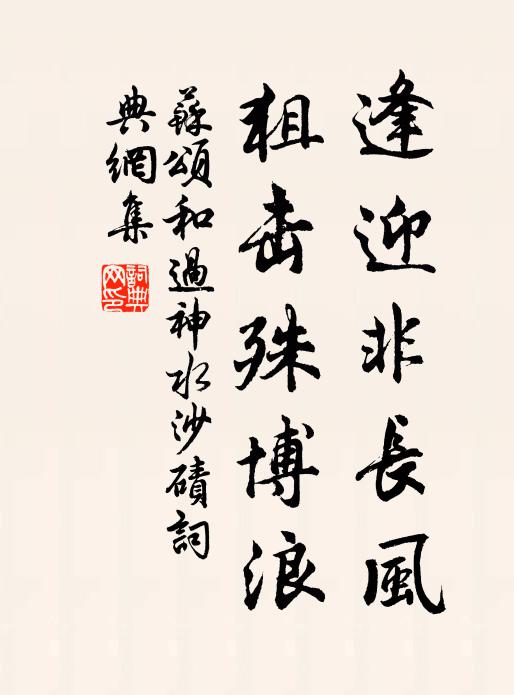 逢迎非長風
狙击殊博浪
蘇頌和過神水沙磧詞
典網集
詞典
网印